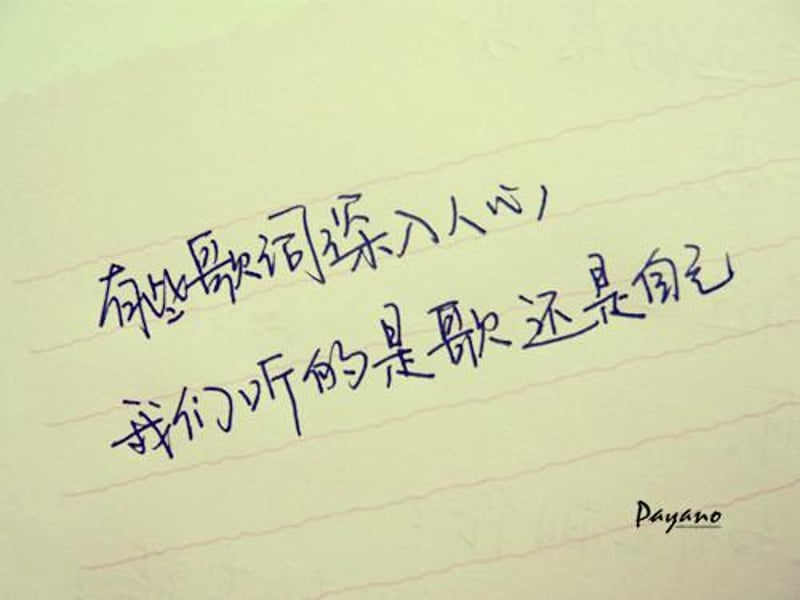 有些歌词深入人心，
我们听的是歌还是自己
Payano